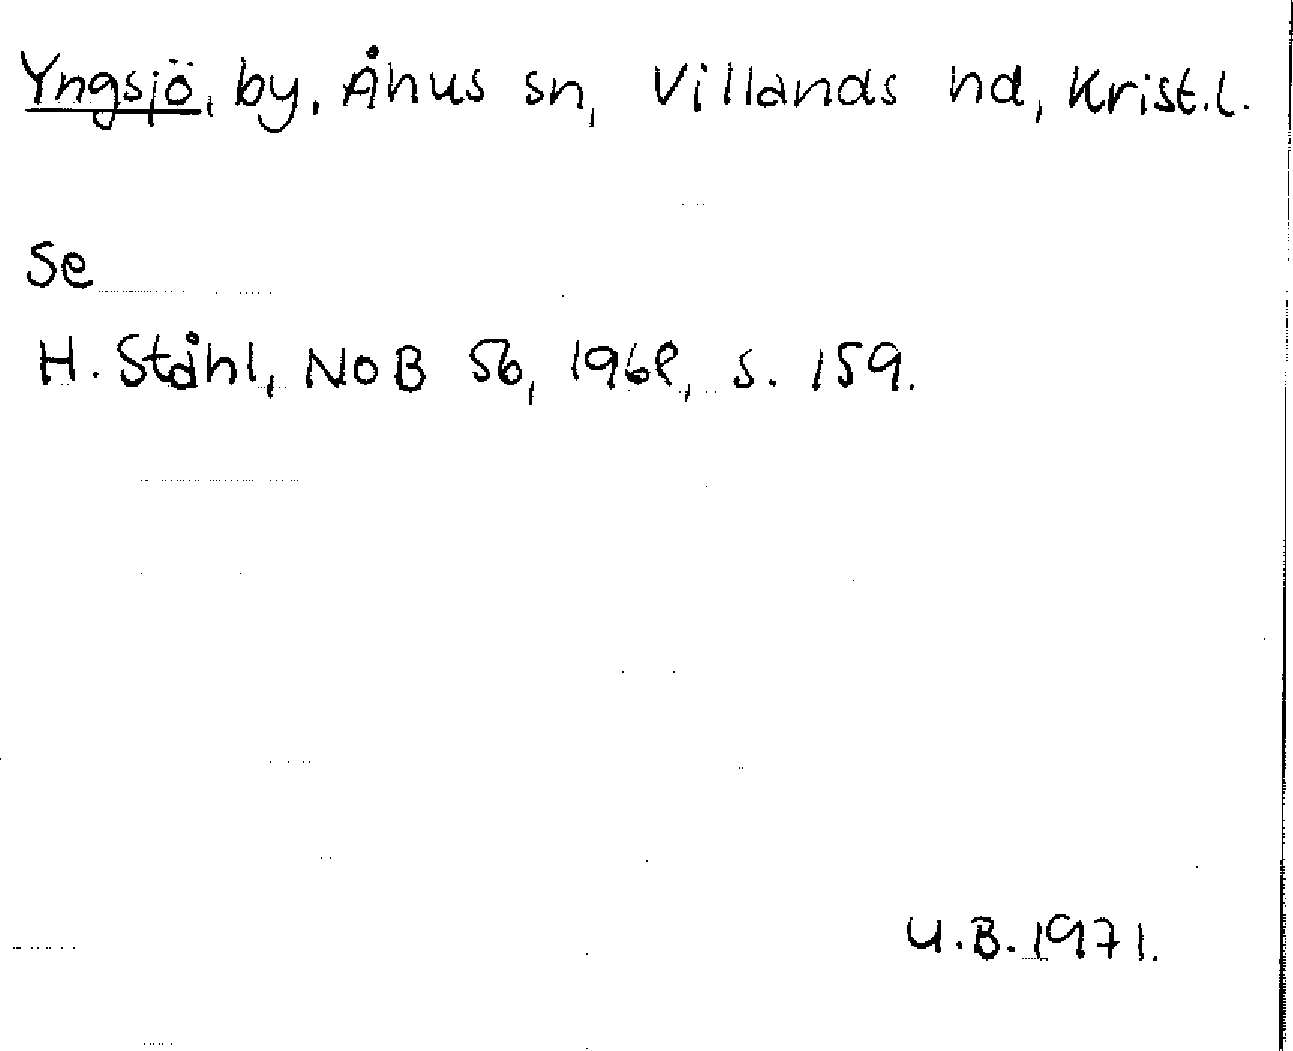 Yngsjö, by, Åhus sn, Villands hd, Krist.l.
Se
H. Ståhl, NoB 56, 1968, s. 159.
U.B. 1971.